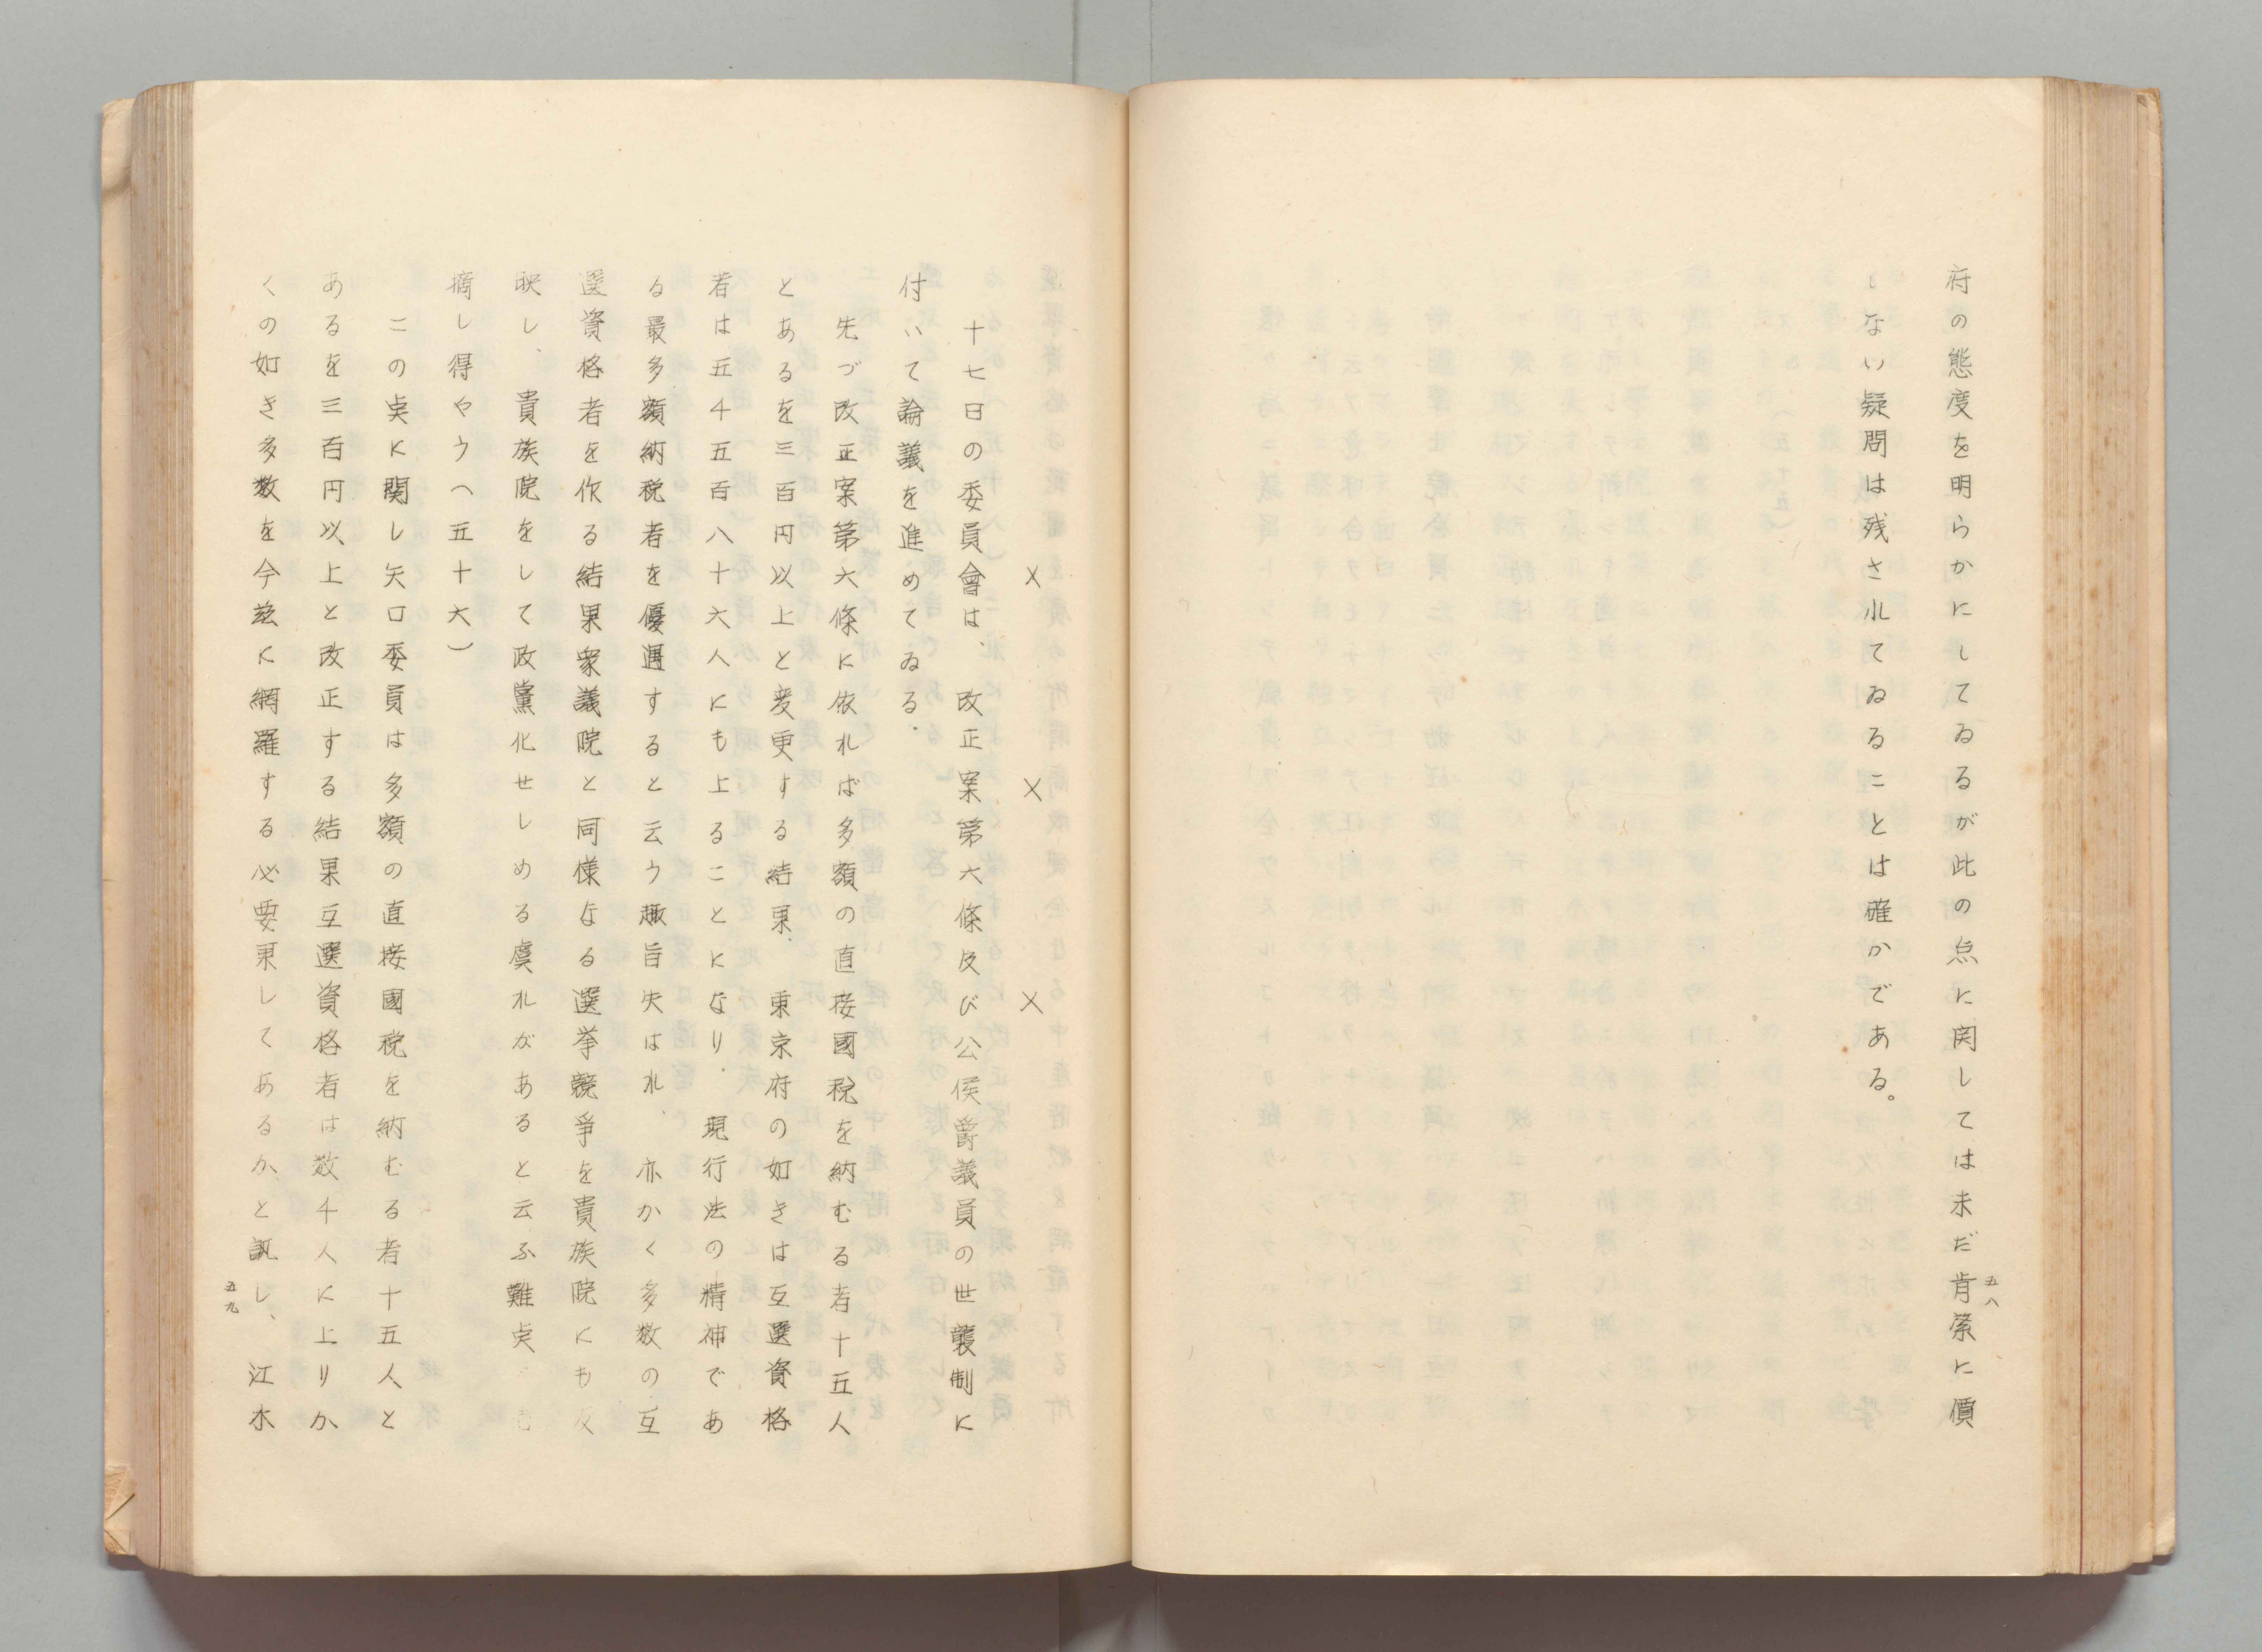 府の態度を明らかにしてゐるが此の点に関しては未だ肯綮に價
しない疑問は残されてゐることは確かである。
五八
×　×　×
十七日の委員會は、改正案第六條及び公侯爵議員の世襲制に
付いて論議を進めてゐる．
先づ改正案第六條に依れば多額の直接國税を納むる者十五人
とあるを三百円以上と変更する結果．東京府の如きは互選資格
者は五千五百八十六人にも上ることになり．現行法の精神であ
る最多額納税者を優遇すると云う趣旨失はれ．亦かく多数の互
選資格者を作る結果衆議院と同様なる選挙競爭を貴族院にも反
映し．貴族院をして政黨化せしめる虞れがあると云ふ難点
摘し得やう（五十六）
この点に関し矢口委員は多額の直接國税を納むる者十五人と
あるを三百円以上と改正する結果互選資格者は数千人に上りか
くの如き多数を今茲に網羅する必要果してあるか、と訊し、江木
五九